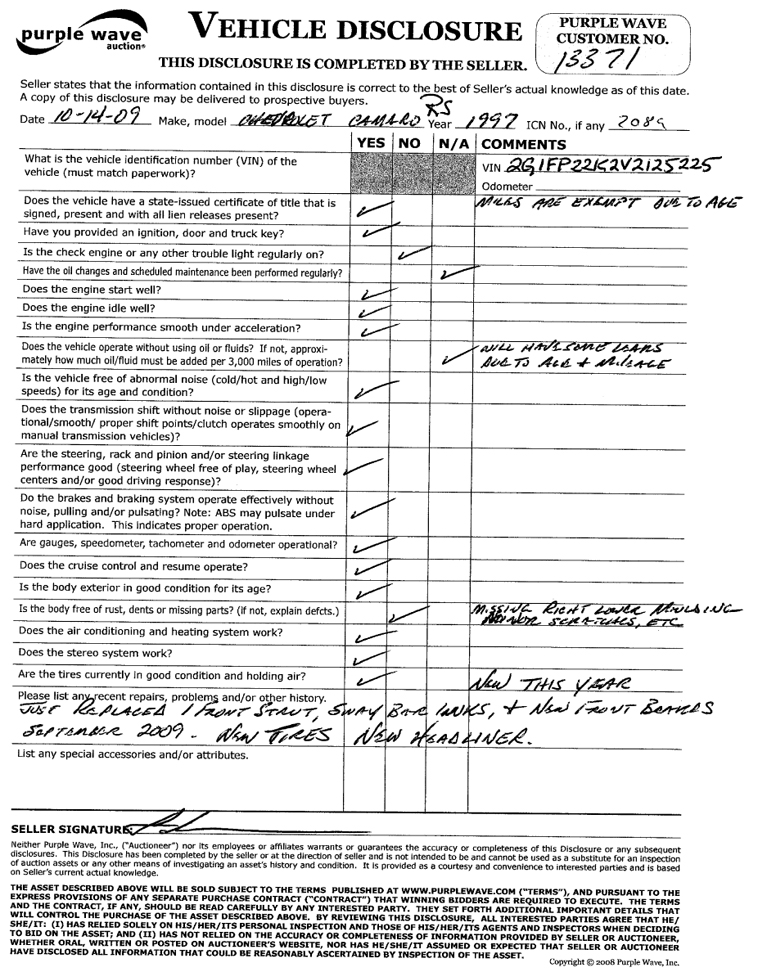 purple wave
auction®
VEHICLE DISCLOSURE
THIS DISCLOSURE IS COMPLETED BY THE SELLER.
PURPLE WAVE
CUSTOMER NO.
13371
Seller states that the information contained in this disclosure is correct to the best of Seller's actual knowledge as of this date.
A copy of this disclosure may be delivered to prospective buyers.
RS
Date 10-14-09 Make, model CHEVROLET CAMARO Year 1997 ICN No., if any 2089
YES NO N/A COMMENTS
What is the vehicle identification number (VIN) of the
vehicle (must match paperwork)?
VIN 2G1FP22K2V2125225
Odometer
Does the vehicle have a state-issued certificate of title that is
signed, present and with all lien releases present?
MILES ARE EXEMPT DUE TO AGE
Have you provided an ignition, door and truck key?
Is the check engine or any other trouble light regularly on?
Have the oil changes and scheduled maintenance been performed regularly?
Does the engine start well?
Does the engine idle well?
Is the engine performance smooth under acceleration?
Does the vehicle operate without using oil or fluids? If not, approxi-
mately how much oil/fluid must be added per 3,000 miles of operation?
WILL HAVE SOME LEAKS
DUE TO AGE + MILEAGE
Is the vehicle free of abnormal noise (cold/hot and high/low
speeds) for its age and condition?
Does the transmission shift without noise or slippage (opera-
tional/smooth/ proper shift points/clutch operates smoothly on
manual transmission vehicles)?
Are the steering, rack and pinion and/or steering linkage
performance good (steering wheel free of play, steering wheel
centers and/or good driving response)?
Do the brakes and braking system operate effectively without
noise, pulling and/or pulsating? Note: ABS may pulsate under
hard application. This indicates proper operation.
Are gauges, speedometer, tachometer and odometer operational?
Does the cruise control and resume operate?
Is the body exterior in good condition for its age?
Is the body free of rust, dents or missing parts? (if not, explain defcts.)
MISSING RIGHT LOWER MOULDING
MINOR SCRATCHES, ETC
Does the air conditioning and heating system work?
Does the stereo system work?
Are the tires currently in good condition and holding air?
NEW THIS YEAR
Please list any recent repairs, problems and/or other history.
JUST REPLACED 1 FRONT STRUT, SWAY BAR LINKS, + NEW FRONT BRAKES
SEPTEMBER 2009. NEW TIRES NEW HEADLINER.
List any special accessories and/or attributes.
SELLER SIGNATURE:
Neither Purple Wave, Inc., ("Auctioneer") nor its employees or affiliates warrants or guarantees the accuracy or completeness of this Disclosure or any subsequent
disclosures. This Disclosure has been completed by the seller or at the direction of seller and is not intended to be and cannot be used as a substitute for an inspection
of auction assets or any other means of investigating an asset's history and condition. It is provided as a courtesy and convenience to interested parties and is based
on Seller's current actual knowledge.
THE ASSET DESCRIBED ABOVE WILL BE SOLD SUBJECT TO THE TERMS PUBLISHED AT WWW.PURPLEWAVE.COM ("TERMS"), AND PURSUANT TO THE
EXPRESS PROVISIONS OF ANY SEPARATE PURCHASE CONTRACT ("CONTRACT") THAT WINNING BIDDERS ARE REQUIRED TO EXECUTE. THE TERMS
AND THE CONTRACT, IF ANY, SHOULD BE READ CAREFULLY BY ANY INTERESTED PARTY. THEY SET FORTH ADDITIONAL IMPORTANT DETAILS THAT
WILL CONTROL THE PURCHASE OF THE ASSET DESCRIBED ABOVE. BY REVIEWING THIS DISCLOSURE, ALL INTERESTED PARTIES AGREE THAT HE/
SHE/IT: (I) HAS RELIED SOLELY ON HIS/HER/ITS PERSONAL INSPECTION AND THOSE OF HIS/HER/ITS AGENTS AND INSPECTORS WHEN DECIDING
TO BID ON THE ASSET; AND (II) HAS NOT RELIED ON THE ACCURACY OR COMPLETENESS OF INFORMATION PROVIDED BY SELLER OR AUCTIONEER,
WHETHER ORAL, WRITTEN OR POSTED ON AUCTIONEER'S WEBSITE, NOR HAS HE/SHE/IT ASSUMED OR EXPECTED THAT SELLER OR AUCTIONEER
HAVE DISCLOSED ALL INFORMATION THAT COULD BE REASONABLY ASCERTAINED BY INSPECTION OF THE ASSET.
Copyright © 2008 Purple Wave, Inc.